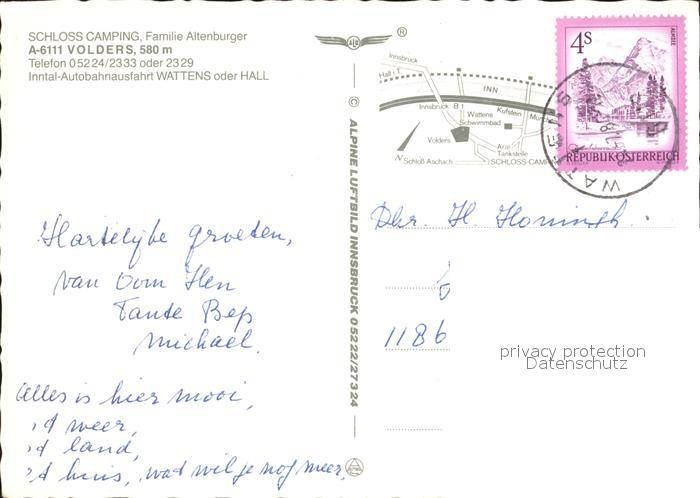 SCHLOSS CAMPING, Familie Altenburger
A-6111 VOLDERS, 580 m
Telefon 05224/2333 oder 2329
Inntal-Autobahnausfahrt WATTENS oder HALL
Hartelijke groeten,
van Oom Hen
Tante Bep
Michael.
Alles is hier mooi,
't weer,
't land,
't huis, wat wil je nog meer.
© ALPINE LUFTBILD INNSBRUCK 05222/27324
®
Innsbruck
Hall i.T.
INN
Innsbruck B1
Kufstein
Wattens
Schwimmbad
Volders
Aral
Tankstelle
N
Schloß Aschach
SCHLOSS-CAMPING
4S
ALMSEE
REPUBLIK ÖSTERREICH
WATTENS
Dhr. H.
1186
privacy protection
Datenschutz